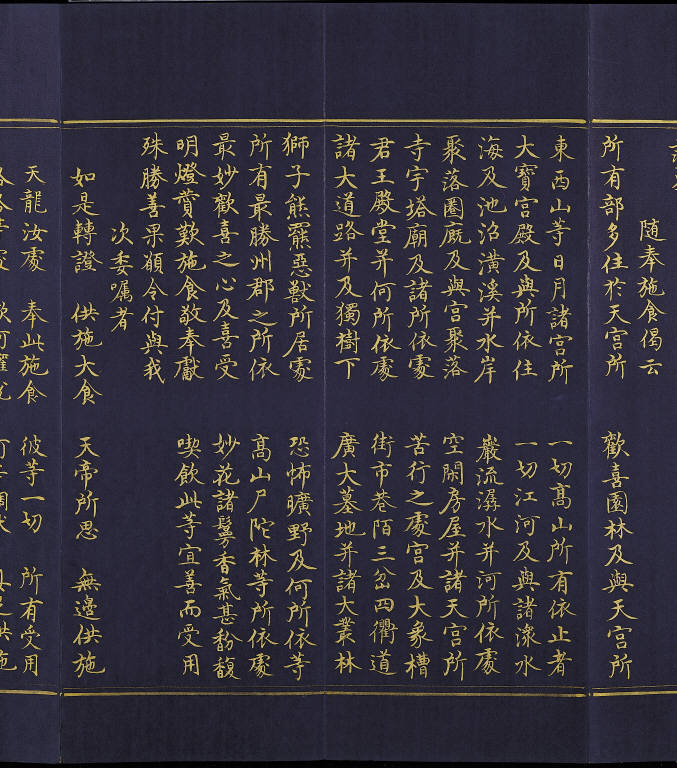 随奉施食偈云
所有部多住於天宮所 歡喜園林及與天宮所
東西山等日月諸宮所 一切髙山所有依止者
大寶宮殿及與所依住 一切江河及與諸潨水
海及池沼潢溪并水岸 巖流潺水并河所依處
聚落圂厩及與宮聚落 空閑房屋并諸天宮所
寺宇塔廟及諸所依處 苦行之處宮及大象槽
君王殿堂并何所依處 街市巷陌三岔四衢道
諸大道路并及獨樹下 廣大墓地并諸大叢林
獅子熊羆惡獸所居處 恐怖曠野及何所依等
所有最勝州郡之所依 髙山尸陀林等所依處
最妙歡喜之心及喜受 妙花諸鬘香氣甚馚馥
明燈賫歎施食敬奉獻 喫飲此等宜善而受用
殊勝善果願令付與我
次委嘱者
如是轉證 供施大食 天帝所思 無邊供施
天龍汝處 奉此施食 彼等一切 所有受用